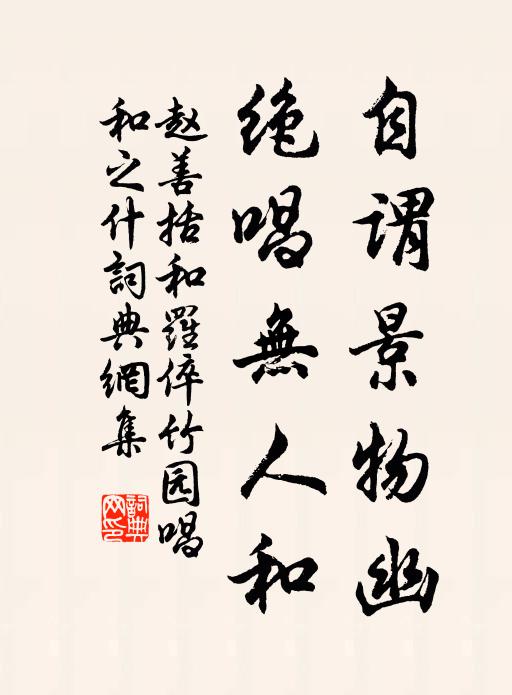 自謂景物幽
絶唱無人和
赵善括和羅倅竹园唱
和之什詞典網集
詞典
网印